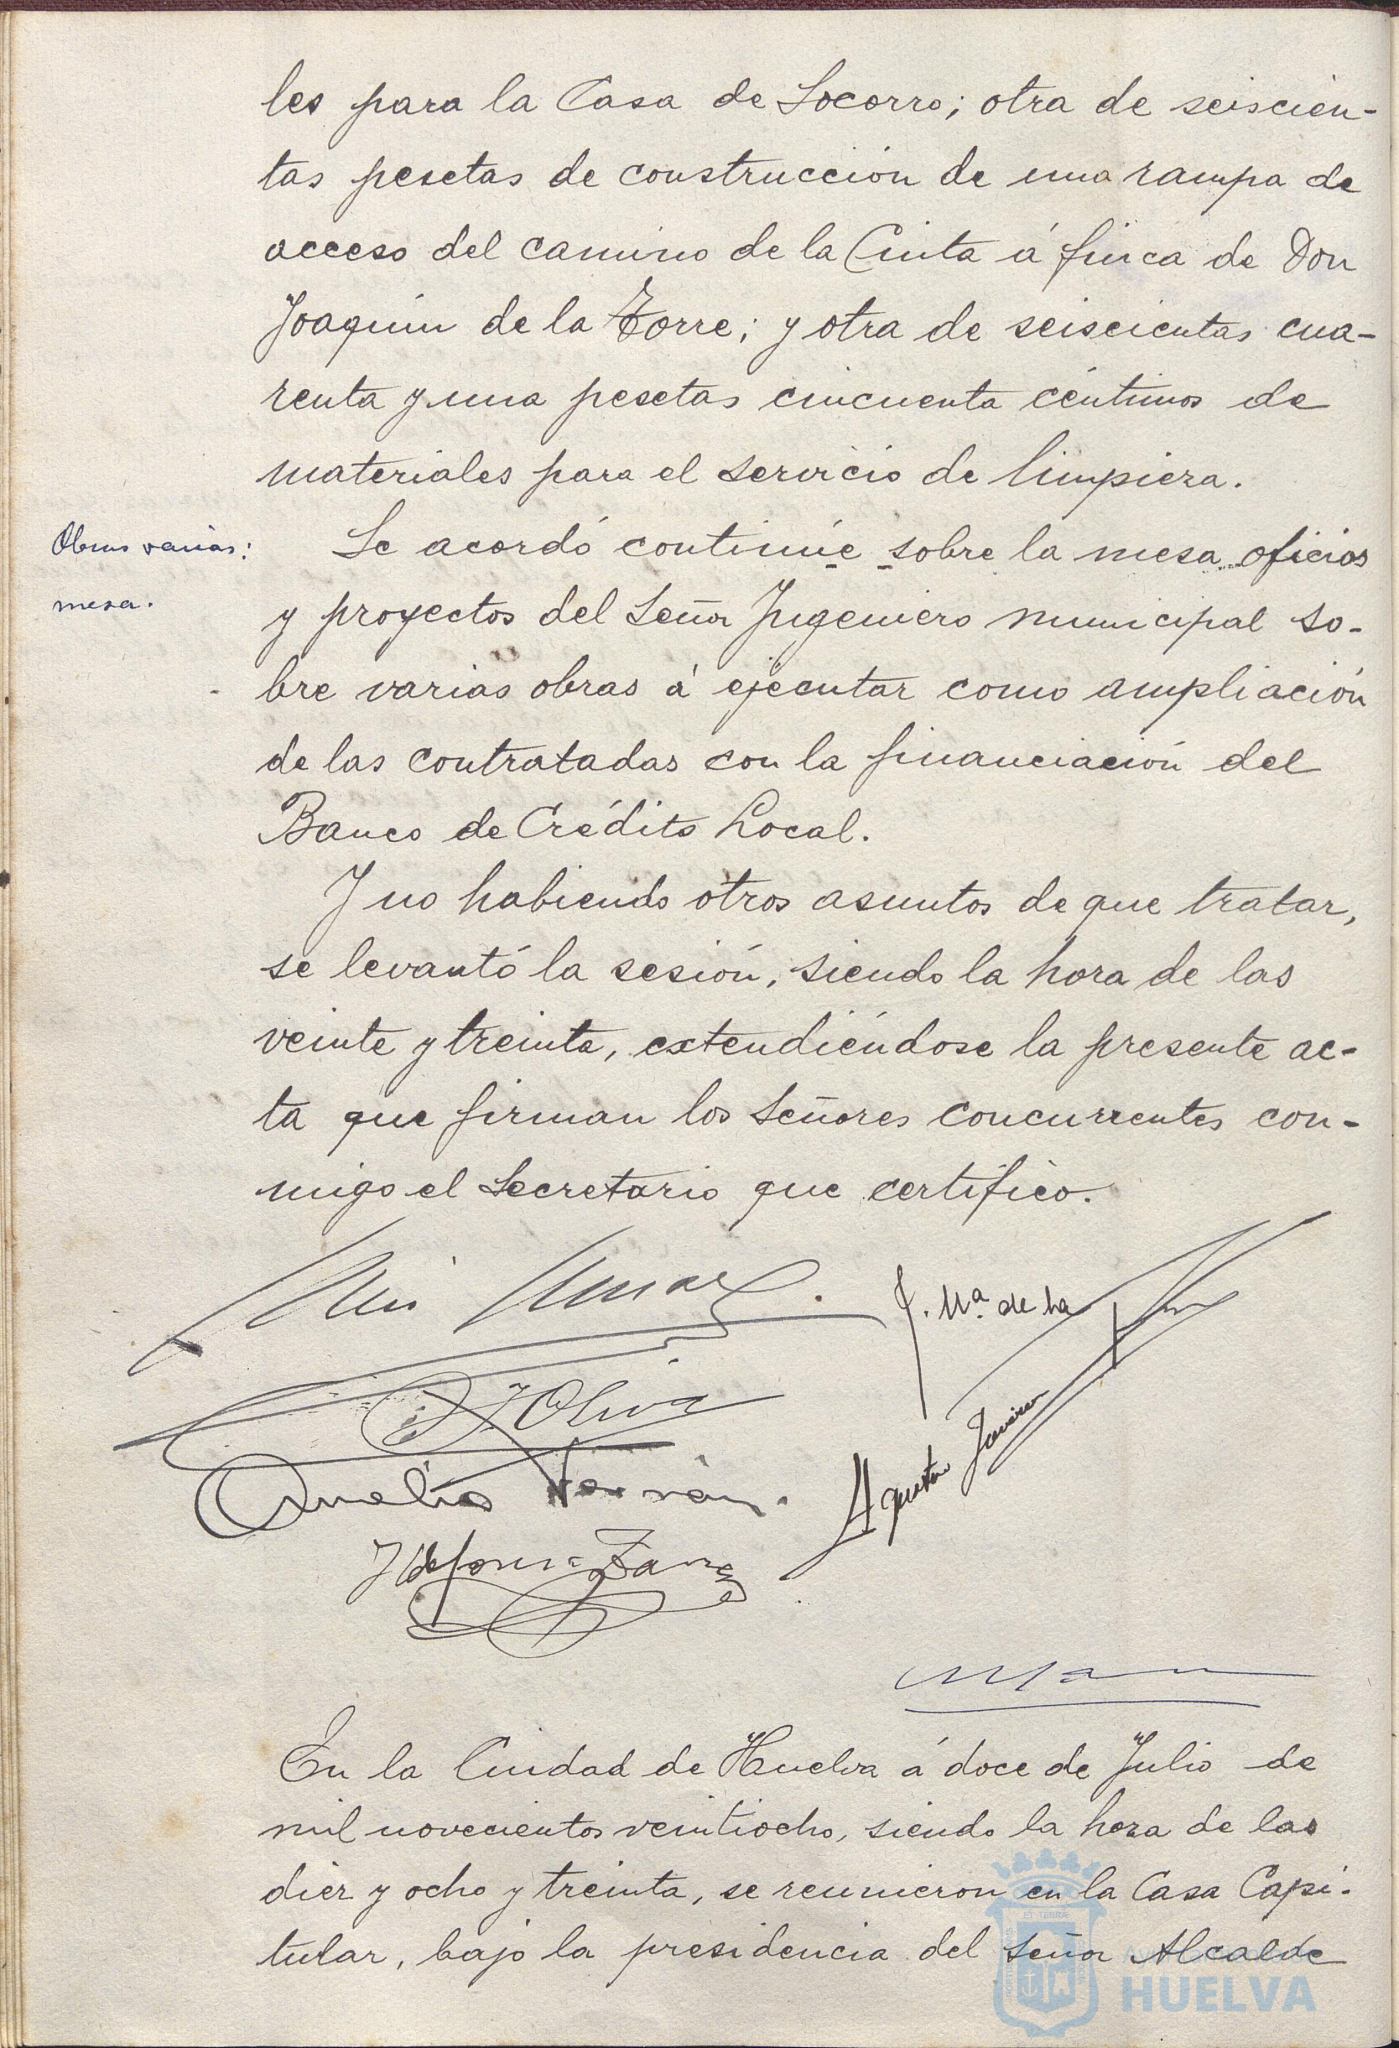 les para la Casa de Socorro; otra de seiscien-
tas pesetas de construcción de una rampa de
acceso del camino de la Cinta á finca de Don
Joaquín de la Torre; y otra de seiscientas cua-
renta y una pesetas cincuenta céntimos de
materiales para el servicio de limpieza.
Obras varias:
mesa.
Se acordó continúe sobre la mesa oficios
y proyectos del Señor Ingeniero municipal so-
bre varias obras á ejecutar como ampliación
de las contratadas con la financiación del
Banco de Crédito Local.
Y no habiendo otros asuntos de que tratar,
se levantó la sesión, siendo la hora de las
veinte y treinta, extendiéndose la presente ac-
ta que firman los Señores concurrentes con-
migo el Secretario que certifico.
J. Mª. de la
Oliva
Aurelio
Agustín Jimenez
Ildefonso
En la Ciudad de Huelva á doce de Julio de
mil novecientos veintiocho, siendo la hora de las
diez y ocho y treinta, se reunieron en la Casa Capi-
tular, bajo la presidencia del Señor Alcalde
HUELVA